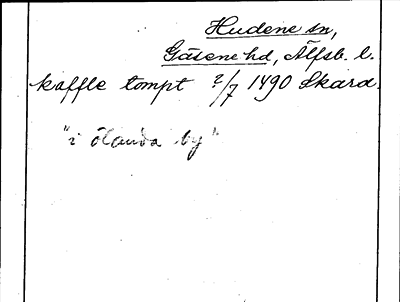 Hudene sn,
Gäsene hd, Älfsb. l.
kaffle tompt 2/7 1490 Skard.
"i ölanda by"